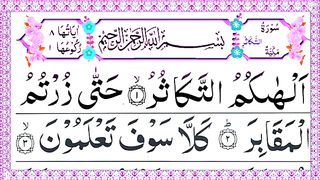 سُورَةُ التَّكَاثُرِ مَكِّيَّةٌ
بِسْمِ اللّٰهِ الرَّحْمٰنِ الرَّحِيْمِ
اٰيَاتُهَا ٨
رُكُوْعُهَا ١
اَلْهٰىكُمُ التَّكَاثُرُ ۙ﴿١﴾ حَتّٰى زُرْتُمُ
الْمَقَابِرَ ؕ﴿٢﴾ كَلَّا سَوْفَ تَعْلَمُوْنَ ۙ﴿٣﴾